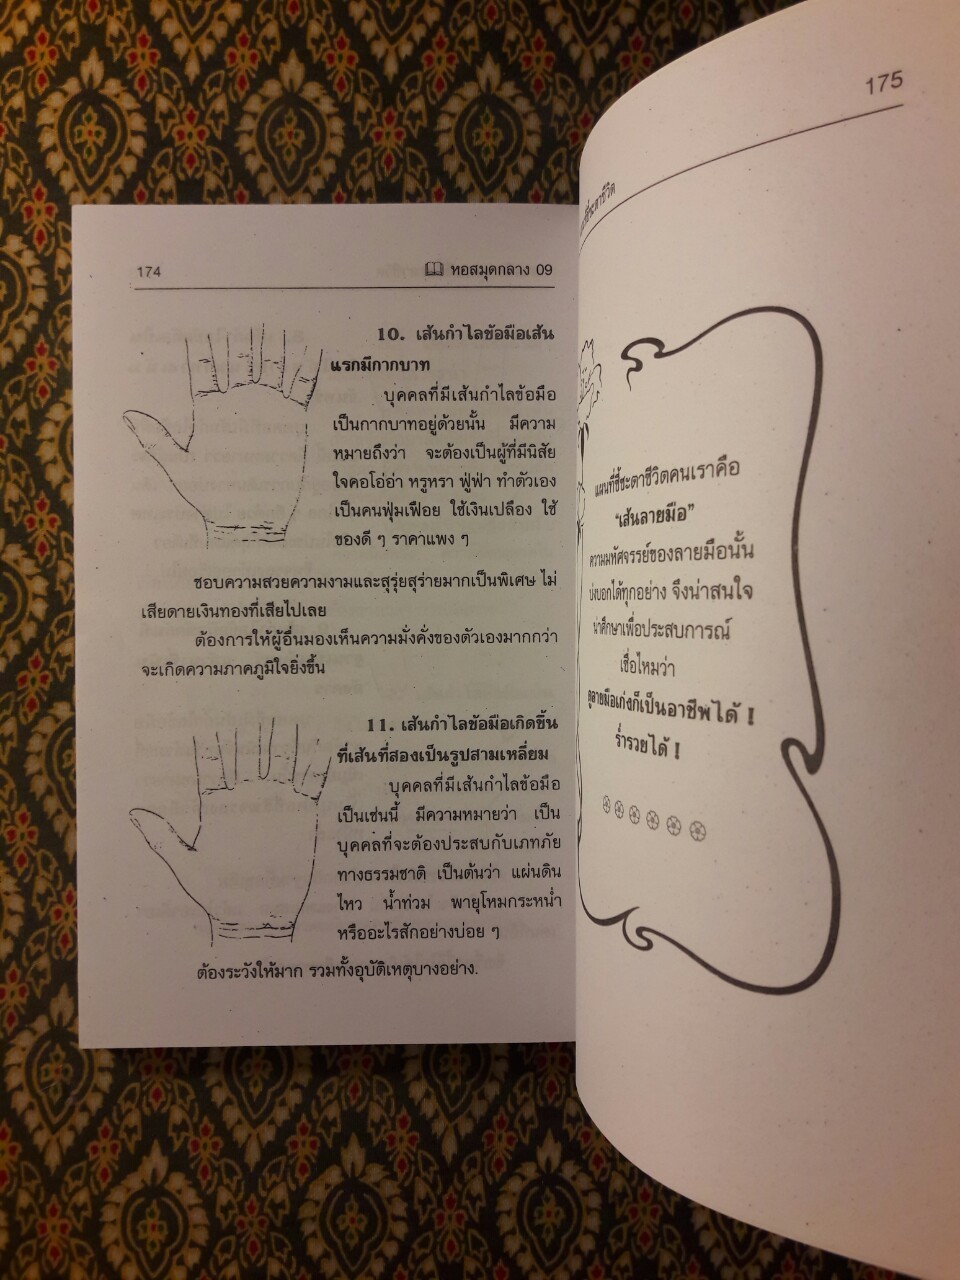 174
หอสมุดกลาง 09
10. เส้นกำไลข้อมือเส้น
แรกมีกากบาท
บุคคลที่มีเส้นกำไลข้อมือ
เป็นกากบาทอยู่ด้วยนั้น มีความ
หมายถึงว่า จะต้องเป็นผู้ที่มีนิสัย
ใจคอโอ่อ่า หรูหรา ฟู่ฟ่า ทำตัวเอง
เป็นคนฟุ่มเฟือย ใช้เงินเปลือง ใช้
ของดี ๆ ราคาแพง ๆ
ชอบความสวยความงามและสุรุ่ยสุร่ายมากเป็นพิเศษ ไม่
เสียดายเงินทองที่เสียไปเลย
ต้องการให้ผู้อื่นมองเห็นความมั่งคั่งของตัวเองมากกว่า
จะเกิดความภาคภูมิใจยิ่งขึ้น
11. เส้นกำไลข้อมือเกิดขึ้น
ที่เส้นที่สองเป็นรูปสามเหลี่ยม
บุคคลที่มีเส้นกำไลข้อมือ
เป็นเช่นนี้ มีความหมายว่า เป็น
บุคคลที่จะต้องประสบกับเภทภัย
ทางธรรมชาติ เป็นต้นว่า แผ่นดิน
ไหว น้ำท่วม พายุโหมกระหน่ำ
หรืออะไรสักอย่างบ่อย ๆ
ต้องระวังให้มาก รวมทั้งอุบัติเหตุบางอย่าง.
175
แผนที่ชี้ชะตาชีวิตคนเราคือ
"เส้นลายมือ"
ความมหัศจรรย์ของลายมือนั้น
บ่งบอกได้ทุกอย่าง จึงน่าสนใจ
น่าศึกษาเพื่อประสบการณ์
เชื่อไหมว่า
ดูลายมือเก่งก็เป็นอาชีพได้ !
ร่ำรวยได้ !